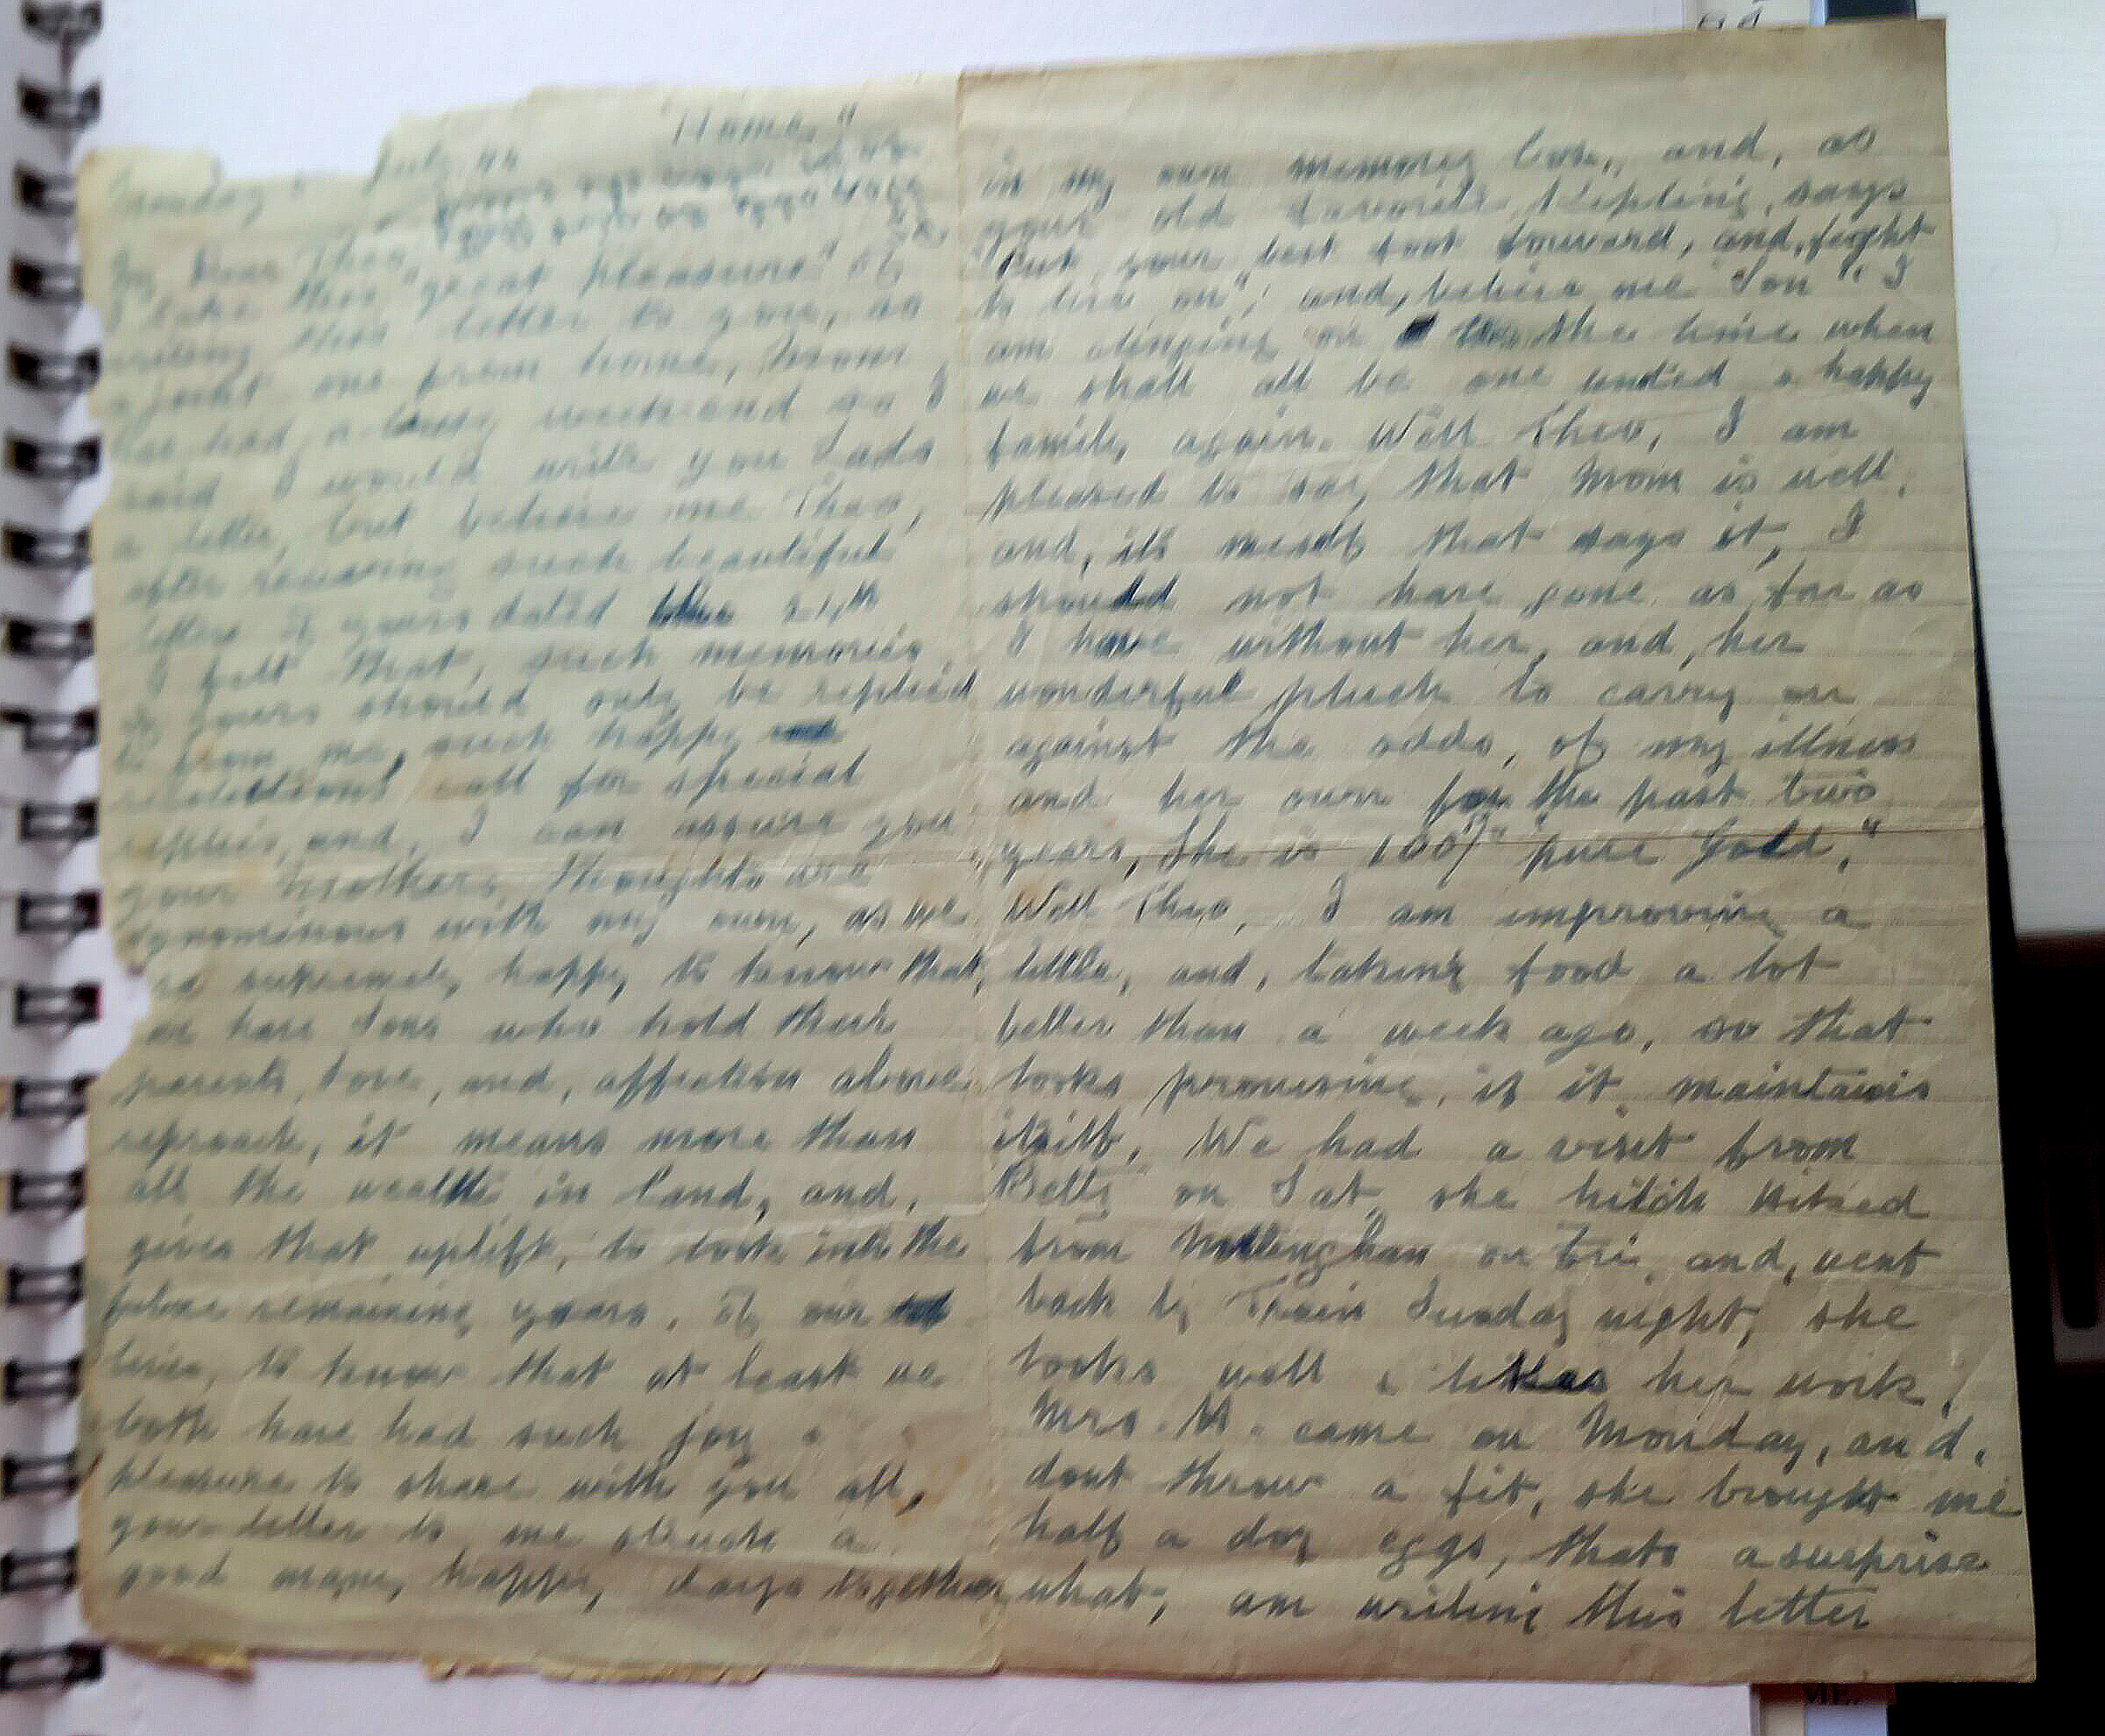 "Home"
July 44
My Dear Theo,
I take this "great pleasure" of
writing this letter to you, as
a joint one from home, Mom
has had a busy weekend so I
said I would write you Lads
a letter, but believe me Theo,
after receiving such beautiful
letter of yours dated the
I felt that, such memories,
of yours should only be replied
to from me, such happy
call for special
replies, and, I can assure you
your mothers, thoughts are
synominous with my own, as we
are extremely happy to know that,
we have Sons who hold their
parents, love, and, affection above
reproach, it means more than
all the wealth in land, and,
gives that uplift, to look into the
future remaining years, of our
lives, to know that at least we
both have had such joy &
pleasure to share with you all,
your letter to me struck a
good many, happy, days together
in my own memory box, and, as
your old favourite Kipling, says
"Put your best foot forward, and, fight
to live on", and, believe me Son" I
am clinging on to the time when
we shall all be one united & happy
family again. Well Theo, I am
pleased to say that Mom is well,
and, its meself that says it, I
should not have gone as far as
I have without her, and, her
wonderful pluck to carry on
against the odds, of my illness
and her own for the past two
years, She is 100% "pure Gold,"
Well Theo, I am improving a
little, and, taking food a lot
better than a week ago, so that
looks promising, if it maintains
itself, We had a visit from
Betty on Sat, she hitch hiked
from Nottingham on Fri, and, went
back by Train Sunday night, she
looks well & likes her work,
Mrs. M. came on Monday, and,
dont throw a fit, she brought me
half a doz eggs, thats a surprise
what, am writing this letter